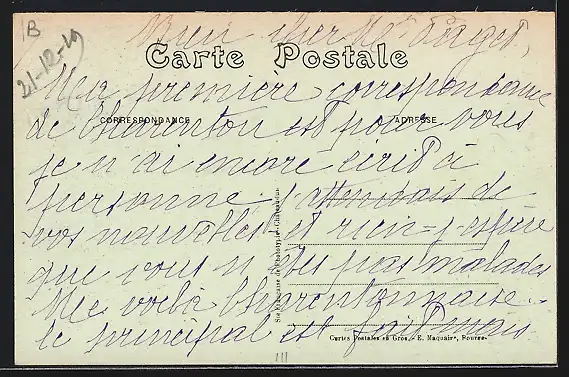 B
21-12-19
Bien cher
Carte Postale
Ma première correspondance
CORRESPONDANCE
ADRESSE
de Charenton est pour vous
je n'ai encore écrit à
personne j'attendais de
vos nouvelles et rien j'espère
que vous n'êtes pas malades
Me voilà Charentonnaise
le principal est fait mais
Cartes Postales en Gros, E. Maquaire, Bourse.